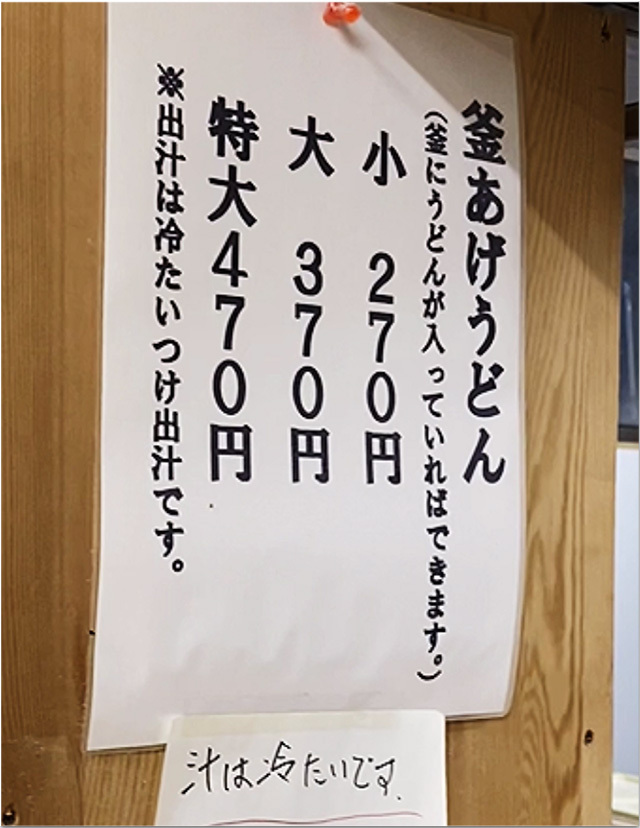 釜あげうどん
(釜にうどんが入っていればできます。)
小 270円
大 370円
特大470円
※出汁は冷たいつけ出汁です。
汁は冷たいです.